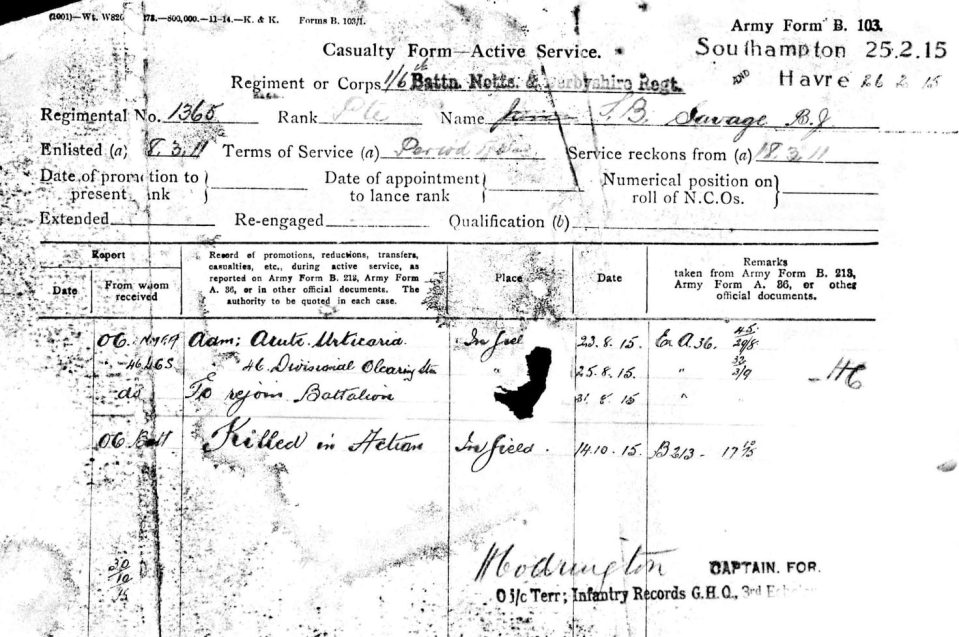 (2001)—Wt. W826 178.—800,000.—11-14.—K. & K. Forms B. 103/1.
Army Form B. 103.
Southampton 25.2.15
Casualty Form—Active Service.
AND Havre 26 2 15
Regiment or Corps 1/6th Battn. Notts. & Derbyshire Regt.
Regimental No. 1365 Rank Pte Name Savage B.J
Enlisted (a) 8.3.11 Terms of Service (a) Period Service reckons from (a) 18.3.11
Date of promotion to present rank
Date of appointment to lance rank
Numerical position on roll of N.C.Os.
Extended Re-engaged Qualification (b)
Report
Date
From whom received
Record of promotions, reductions, transfers,
casualties, etc., during active service, as
reported on Army Form B. 213, Army Form
A. 36, or in other official documents. The
authority to be quoted in each case.
Place
Date
Remarks
taken from Army Form B. 213,
Army Form A. 36, or other
official documents.
OC. Adm; Acute Urticaria. In 23.8.15. A36. 45 29/8
46 Divisional Clearing Stn " 25.8.15. " 32 3/9
do To rejoin Battalion 31.8.15 "
46
OC. Batt Killed in Action In field. 14.10.15. B213 - 17
30
10
15
CAPTAIN. FOR.
O i/c Terr; Infantry Records G.H.Q., 3rd Echelon